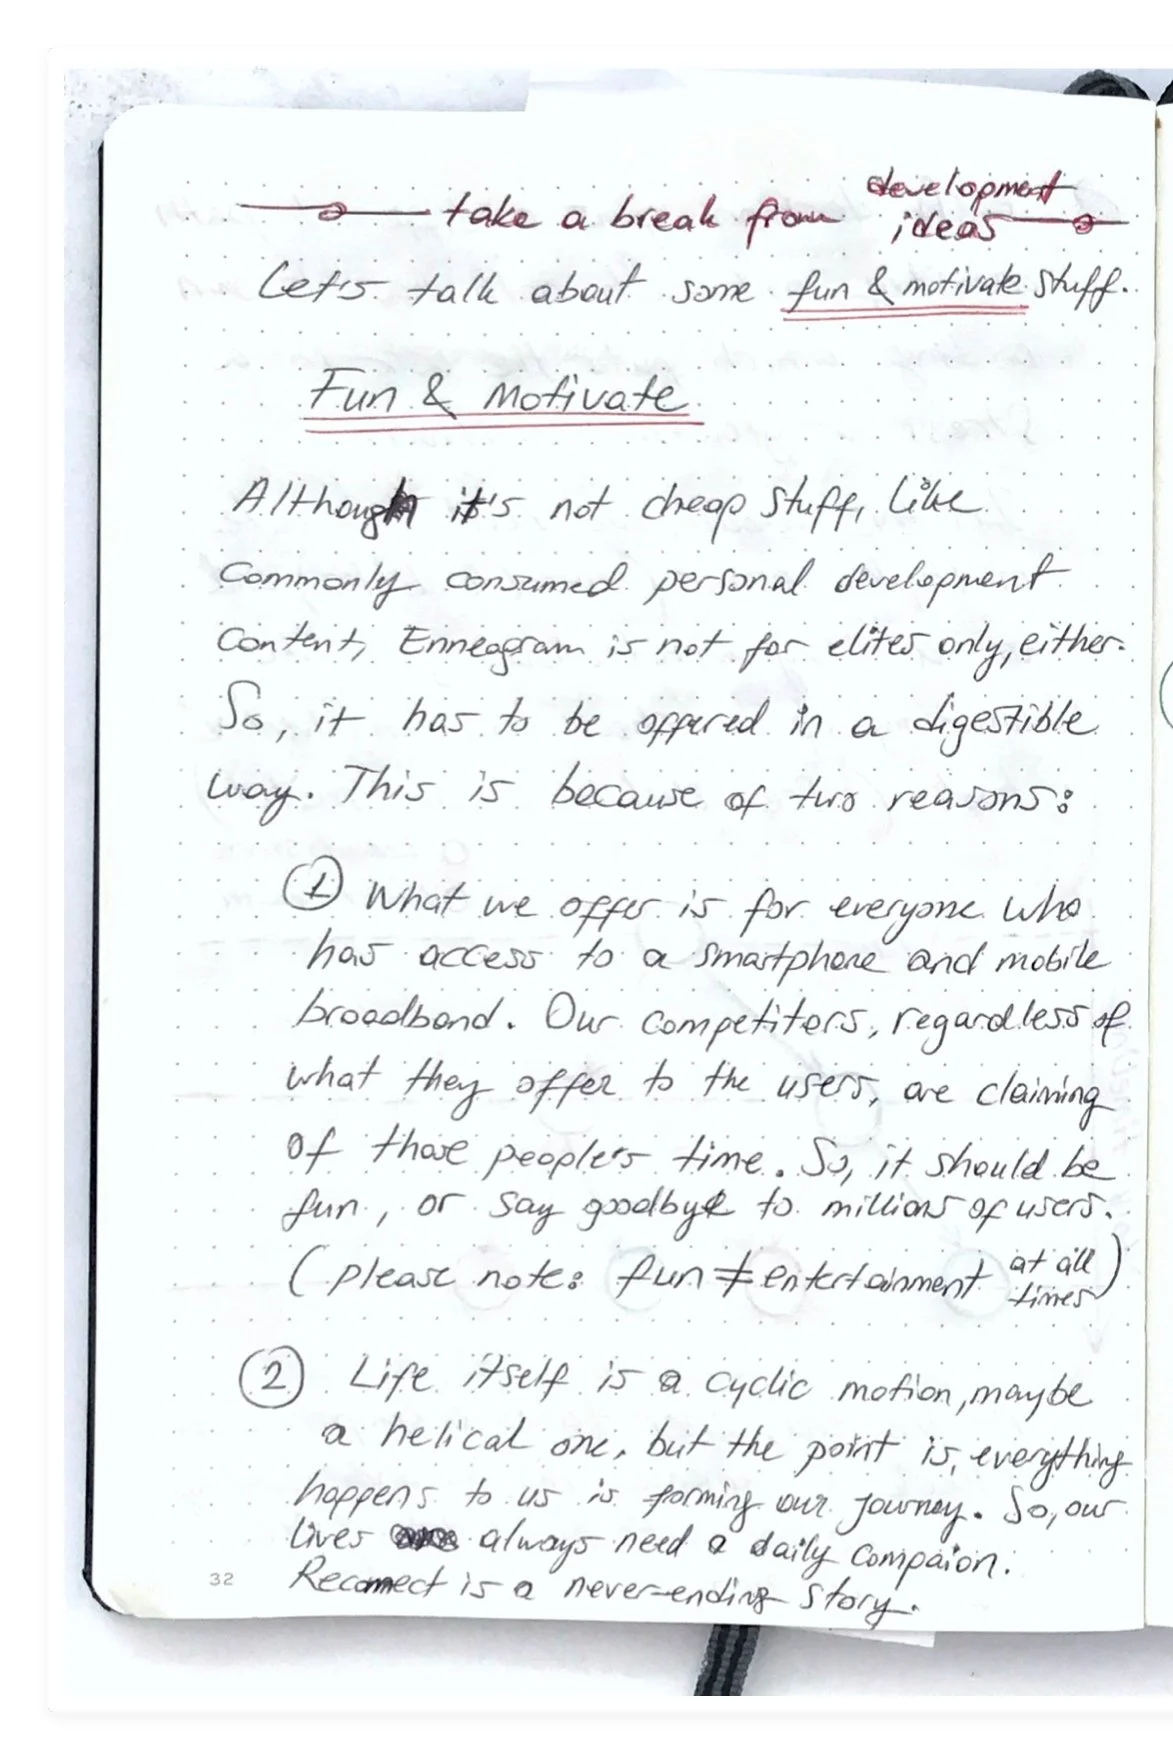 take a break from development ideas
Let's talk about some fun & motivate stuff.
Fun & Motivate
Although it's not cheap stuff, like
commonly consumed personal development
content, Enneagram is not for elites only, either.
So, it has to be offered in a digestible
way. This is because of two reasons:
1 What we offer is for everyone who
has access to a smartphone and mobile
broadband. Our competitors, regardless of
what they offer to the users, are claiming
of those people's time. So, it should be
fun, or say goodbye to millions of users.
(please note: fun ≠ entertainment at all times)
2 Life itself is a cyclic motion, maybe
a helical one, but the point is, everything
happens to us is forming our journey. So, our
lives always need a daily compaion.
Reconnect is a never-ending story.
32